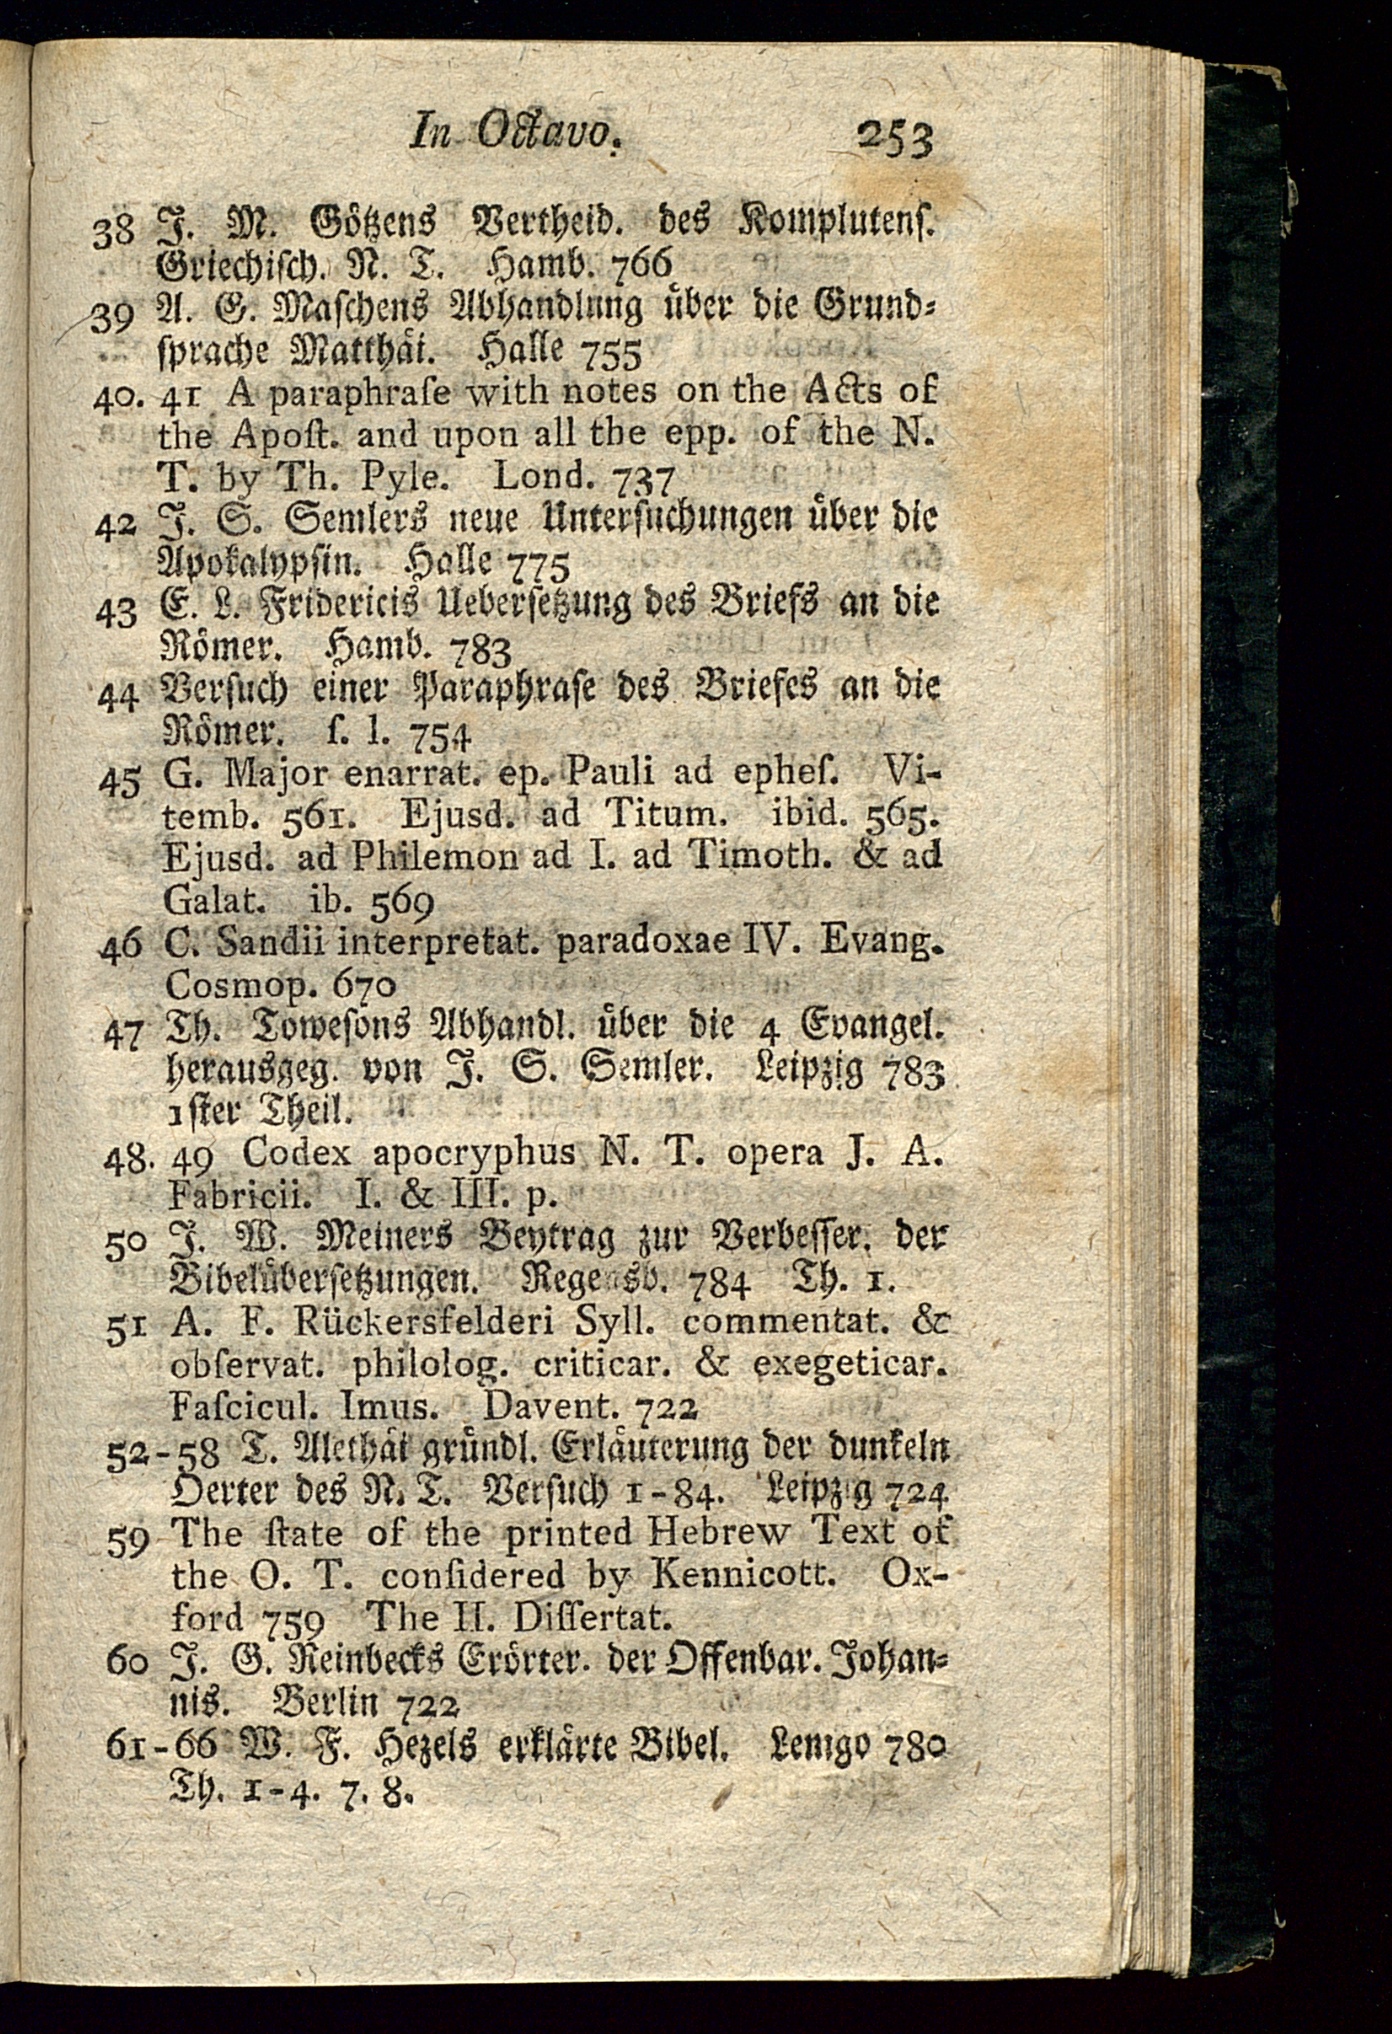 In Octavo. 253
38 J. M. Götzens Vertheid. des Komplutenſ.
Griechiſch. N. T. Hamb. 766
39 A. G. Maſchens Abhandlung über die Grund-
ſprache Matthäi. Halle 755
40. 41 A paraphraſe with notes on the Acts of
the Apoſt. and upon all the epp. of the N.
T. by Th. Pyle. Lond. 737
42 J. S. Semlers neue Unterſuchungen über die
Apokalypſin. Halle 775
43 E. L. Fridericis Ueberſetzung des Briefs an die
Römer. Hamb. 783
44 Verſuch einer Paraphraſe des Briefes an die
Römer. ſ. l. 754
45 G. Major enarrat. ep. Pauli ad epheſ. Vi-
temb. 561. Ejusd. ad Titum. ibid. 565.
Ejusd. ad Philemon ad I. ad Timoth. & ad
Galat. ib. 569
46 C. Sandii interpretat. paradoxae IV. Evang.
Cosmop. 670
47 Th. Toweſons Abhandl. über die 4 Evangel.
herausgeg. von J. S. Semler. Leipzig 783
1ſter Theil.
48. 49 Codex apocryphus N. T. opera J. A.
Fabricii. I. & III. p.
50 J. W. Meiners Beytrag zur Verbeſſer. der
Bibelüberſetzungen. Regensb. 784 Th. 1.
51 A. F. Rückersfelderi Syll. commentat. &
obſervat. philolog. criticar. & exegeticar.
Faſcicul. Imus. Davent. 722
52-58 T. Alethäi gründl. Erläuterung der dunkeln
Oerter des N. T. Verſuch 1-84. Leipzig 724
59 The ſtate of the printed Hebrew Text of
the O. T. conſidered by Kennicott. Ox-
ford 759 The II. Diſſertat.
60 J. G. Reinbecks Erörter. der Offenbar. Johan-
nis. Berlin 722
61-66 W. F. Hezels erklärte Bibel. Lemgo 780
Th. 1-4. 7. 8.